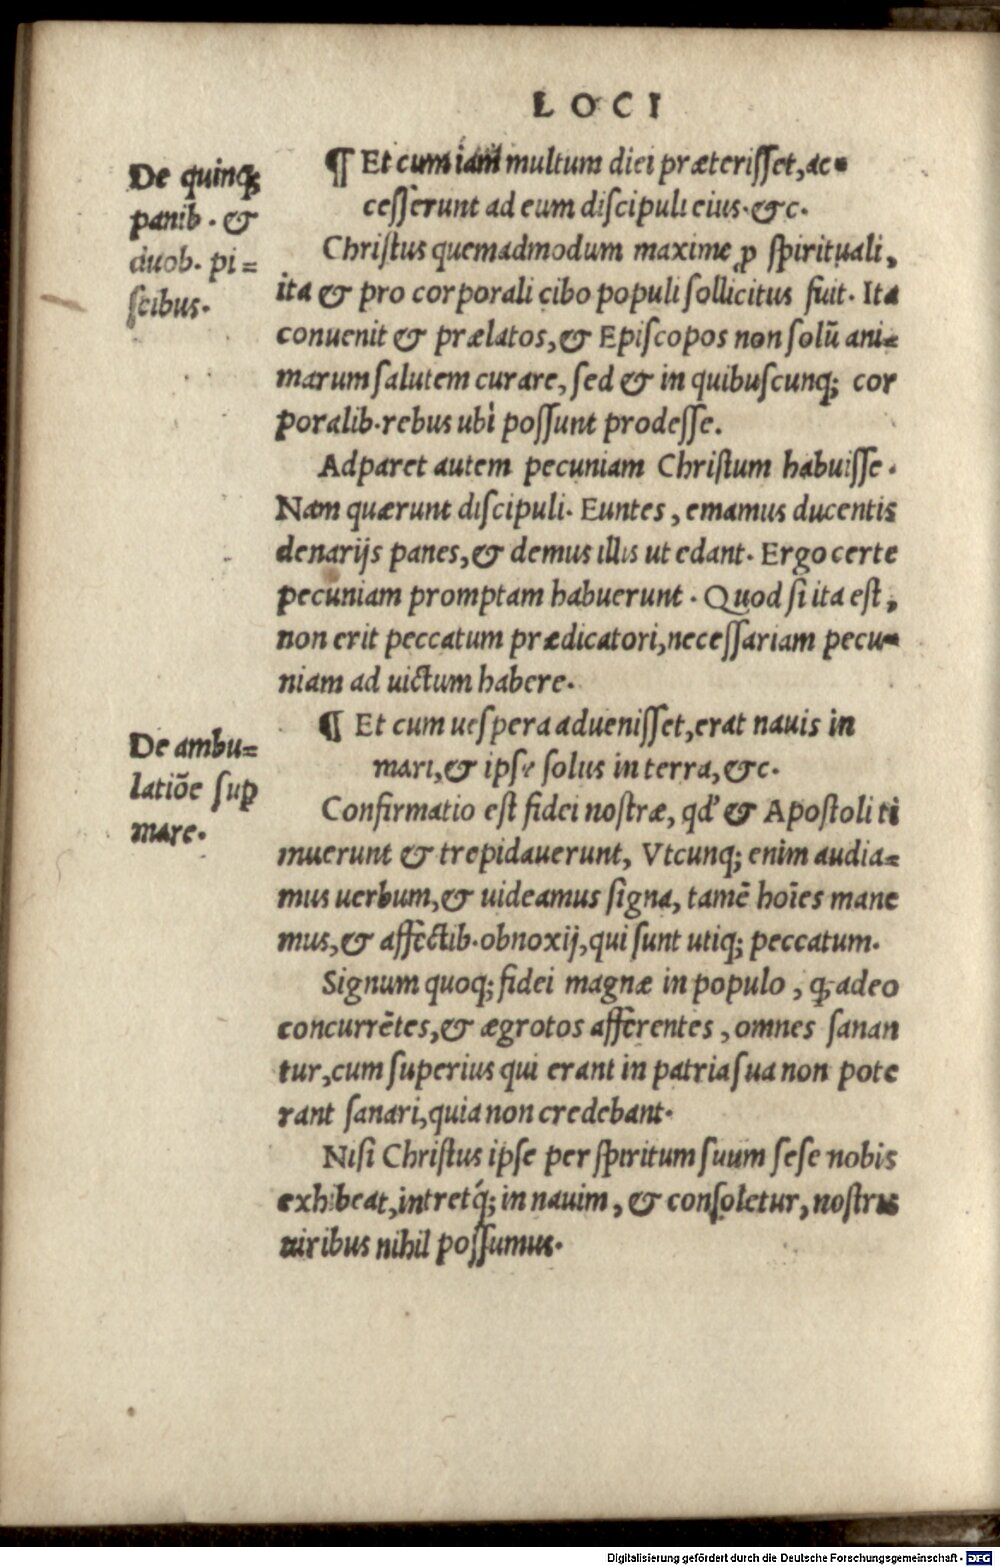 LOCI
De quinqꝫ
panib. &
duob. pi=
scibus.
¶ Et cum iam multum diei præterisset, ac=
cesserunt ad eum discipuli eius. &c.
Christus quemadmodum maxime ꝓ spirituali,
ita & pro corporali cibo populi sollicitus fuit. Ita
conuenit & prælatos, & Episcopos non solũ ani=
marum salutem curare, sed & in quibuscunqꝫ cor
poralib. rebus ubi possunt prodesse.
Adparet autem pecuniam Christum habuisse.
Nam quærunt discipuli. Euntes, emamus ducentis
denarijs panes, & demus illis ut edant. Ergo certe
pecuniam promptam habuerunt. Quod si ita est,
non erit peccatum prædicatori, necessariam pecu=
niam ad uictum habere.
De ambu=
latiõe suꝑ
mare.
¶ Et cum uespera aduenisset, erat nauis in
mari, & ipse solus in terra, &c.
Confirmatio est fidei nostræ, qd' & Apostoli ti
muerunt & trepidauerunt, Vtcunqꝫ enim audia=
mus uerbum, & uideamus signa, tamẽ hoĩes mane
mus, & affectib. obnoxij, qui sunt utiqꝫ peccatum.
Signum quoqꝫ fidei magnæ in populo, qꝫ adeo
concurrẽtes, & ægrotos afferentes, omnes sanan
tur, cum superius qui erant in patria sua non pote
rant sanari, quia non credebant.
Nisi Christus ipse per spiritum suum sese nobis
exhibeat, intretq́ꝫ in nauim, & consoletur, nostris
uiribus nihil possumus.
Digitalisierung gefördert durch die Deutsche Forschungsgemeinschaft - DFG